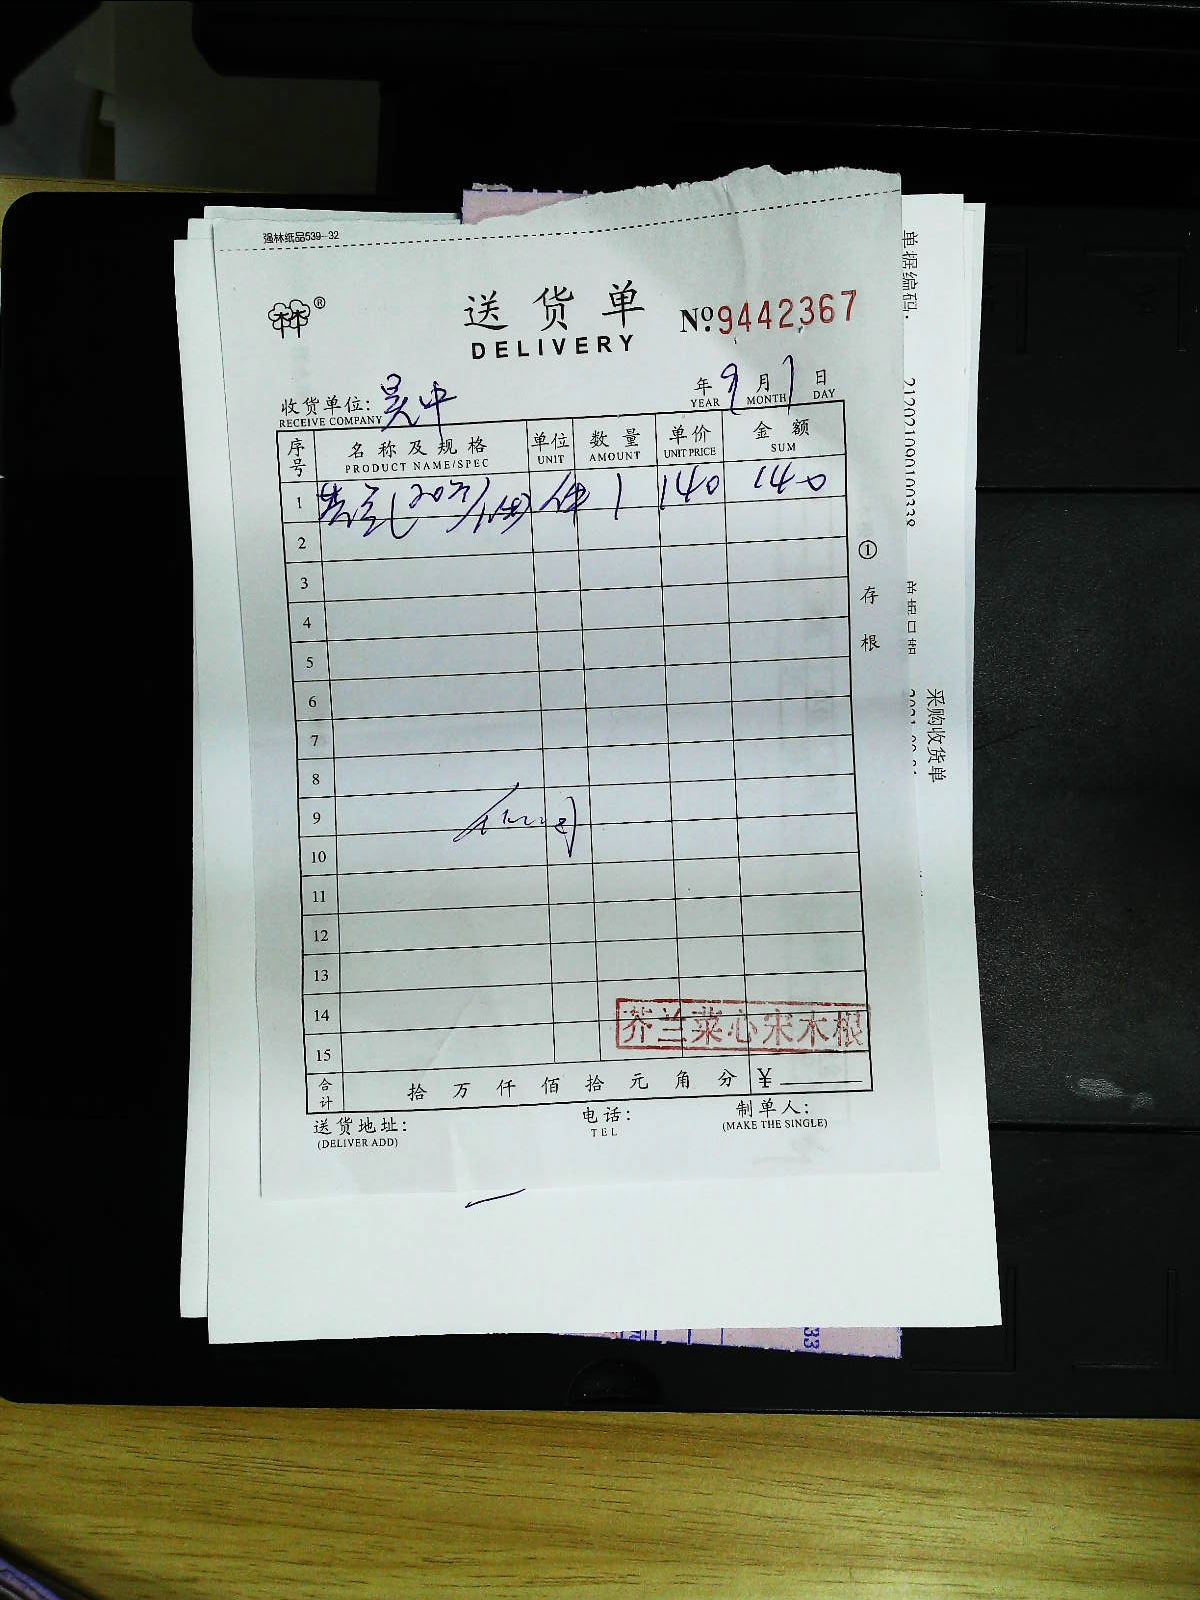 强林纸品539-32
林林®
送货单 №9442367
DELIVERY
收货单位: 吴中 年 9 月 1 日
RECEIVE COMPANY YEAR MONTH DAY
序号 名称及规格 单位 数量 单价 金额
PRODUCT NAME/SPEC UNIT AMOUNT UNIT PRICE SUM
1 件 1 140 140
2
3
4
5
6
7
8
9
10
11
12
13
14
15
芥兰菜心宋木根
合计 拾 万 仟 佰 拾 元 角 分 ¥
送货地址: 电话: 制单人:
(DELIVER ADD) TEL (MAKE THE SINGLE)
① 存根
单据编码:
采购收货单
33